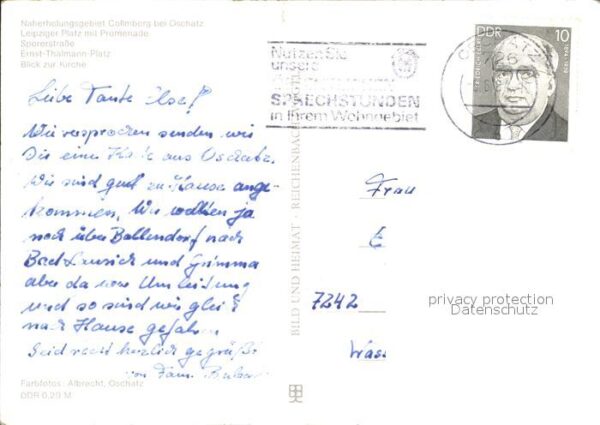 Naherholungsgebiet Collmberg bei Oschatz
Leipziger Platz mit Promenade
Sporerstraße
Ernst-Thälmann-Platz
Blick zur Kirche
Liebe Tante Ilse!
Wie versprochen senden wir
Dir eine Karte aus Oschatz.
Wir sind gut zu Hause ange-
kommen. Wir wollten ja
noch über Ballendorf nach
Bad Lausick und Grimma
aber da war Umleitung
und so sind wir gleich
nach Hause gefahren
Seid recht herzlich gegrüßt
von Fam.
Farbfotos: Albrecht, Oschatz
DDR 0,25 M
BILD UND HEIMAT · REICHENBACH
Nutzen Sie
unsere
SPRECHSTUNDEN
in Ihrem Wohngebiet
OSCHATZ
726
DDR
10
Frau
7242
privacy protection
Datenschutz